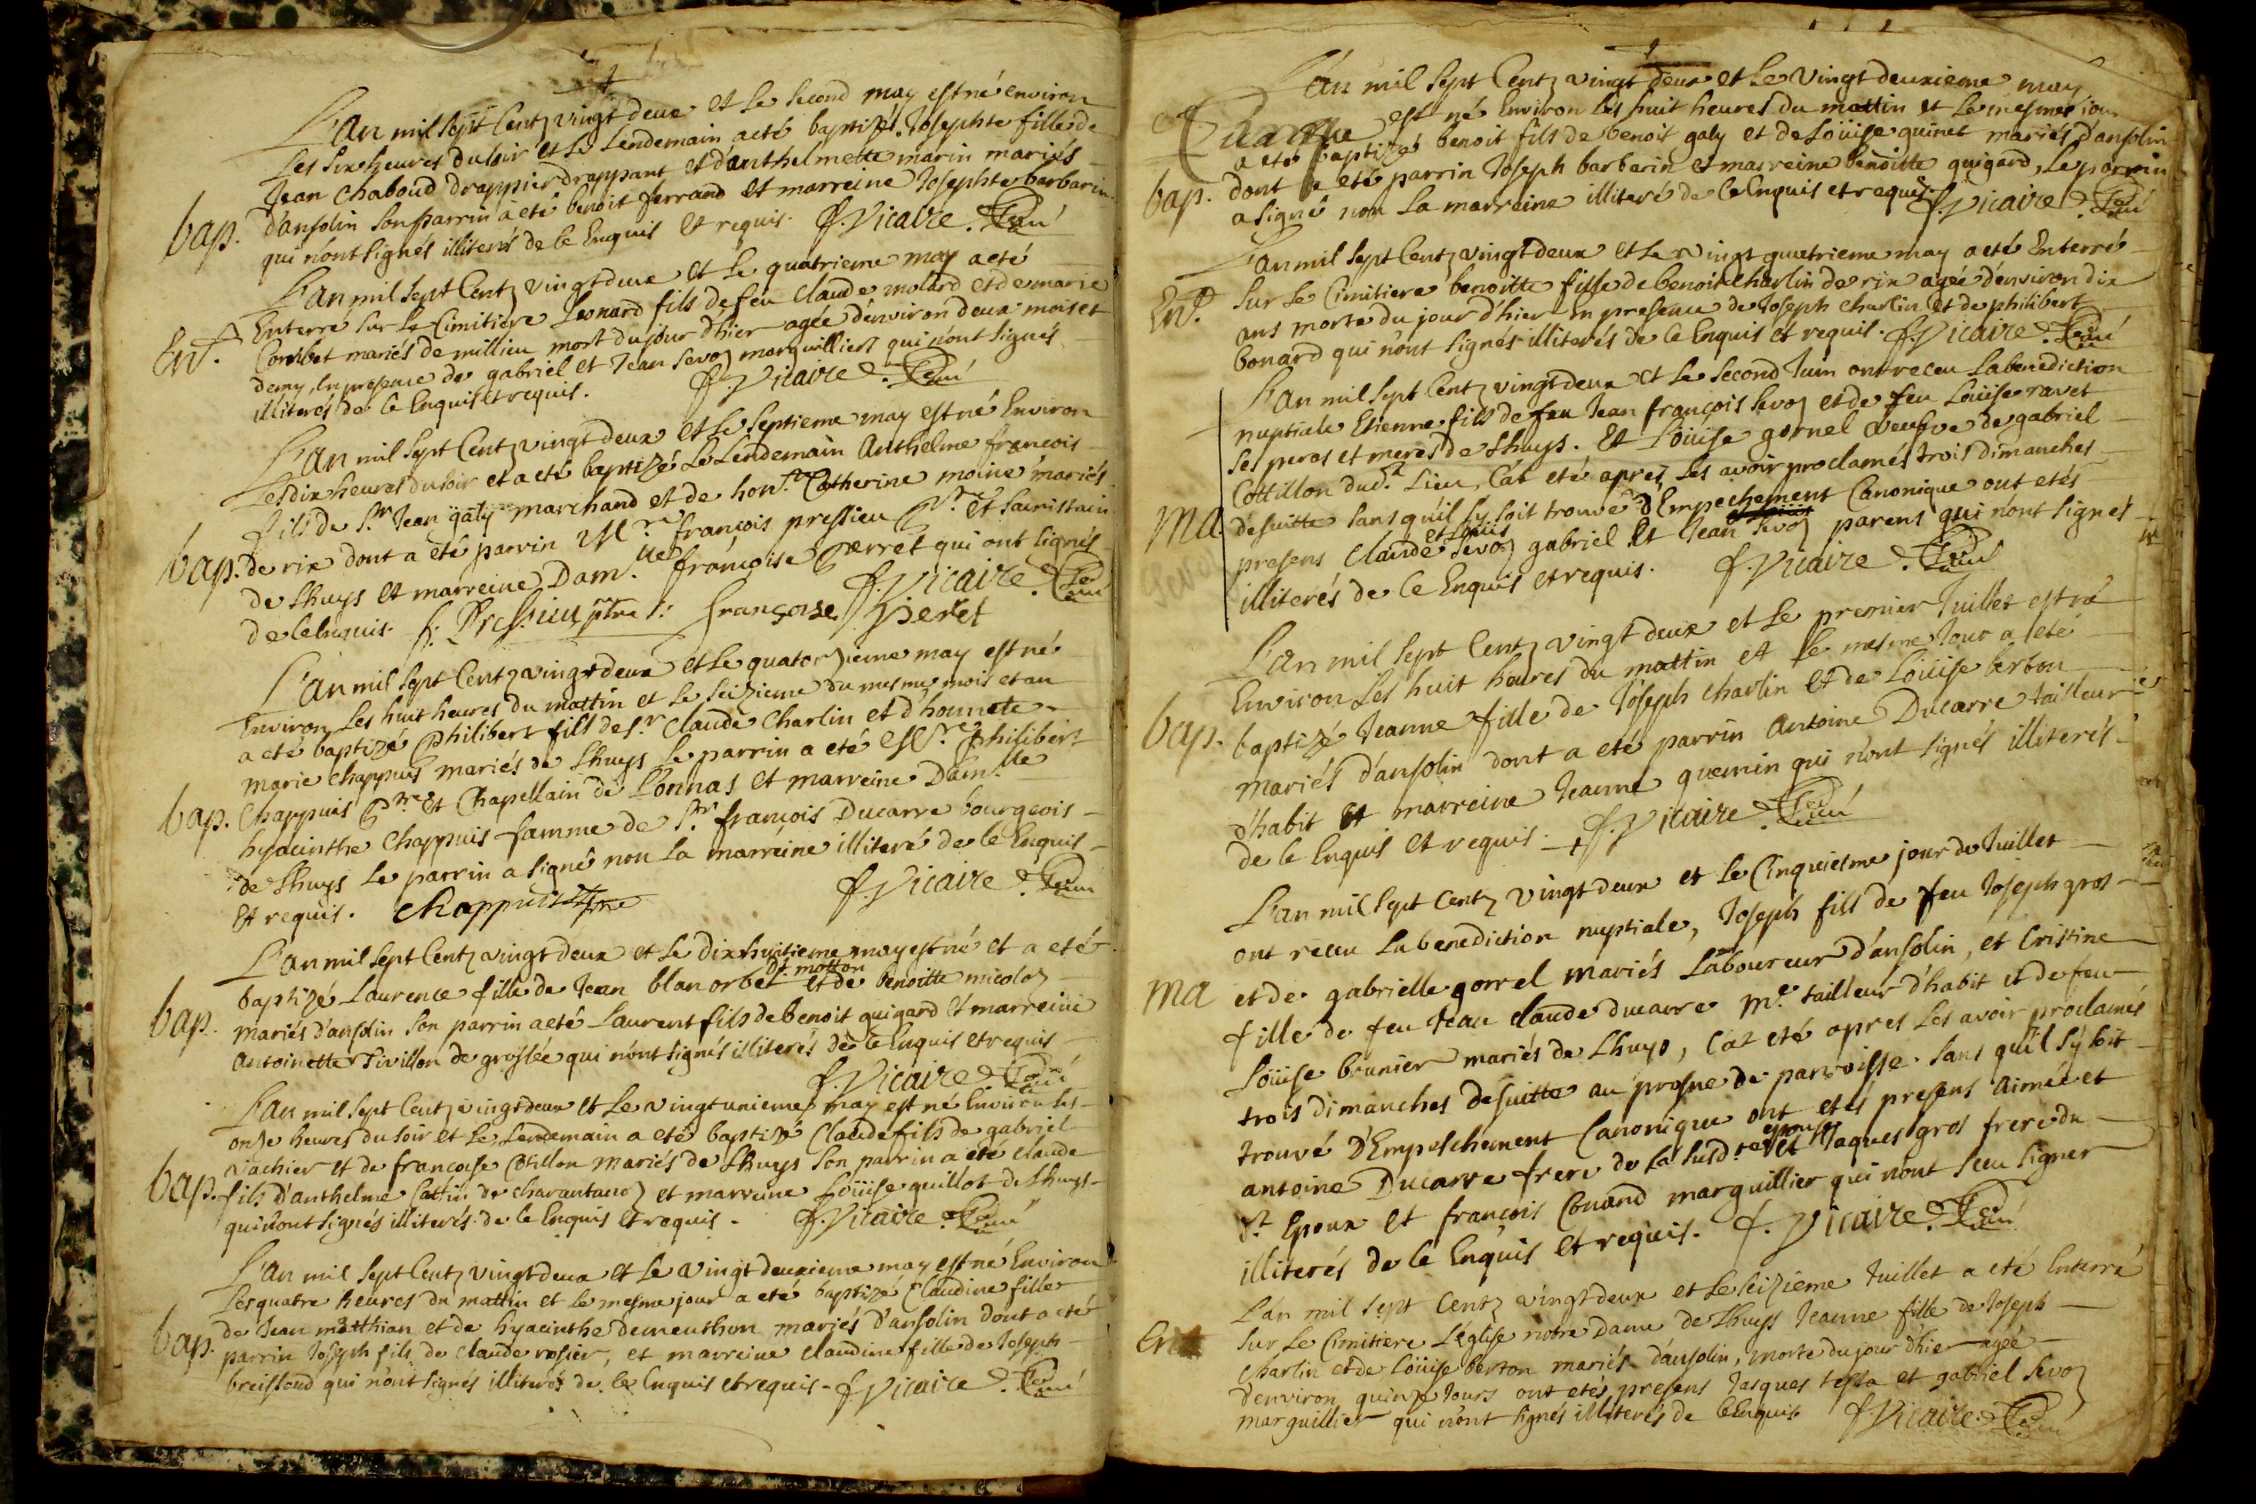 L'an mil sept Centz vingt deux et le second may est né environ
Les six heures du soir et le Lendemain a eté baptizé Josephte fille de
Jean Chaboud drappier drappant et d'anthelmette marin mariés
bap. d'ansolin son parrin a eté benoit ferrand et marreine Josephte barbarin
qui n'ont signés illiterés de ce Enquis et requis. f. Vicaire.
L'an mil sept Centz vingt deux et le quatrieme may a eté
Ent. Enterré sur le Cimitiere Leonard fils de feu Claude molard et de marie
Combet mariés de millieu mort du jour d'hier agée d'environ deux mois et
demy, En presence de gabriel et Jean sevoz marguilliers qui n'ont signés
illiterés de ce Enquis et requis. f. Vicaire.
L'an mil sept Centz vingt deux et le septieme may est né Environ
Les dix heures du soir et a eté baptizé Le Lendemain Anthelme françois
fils de Sr. Jean galy marchand et de hon.te Catherine moine mariés
bap. de rix dont a eté parrin Mre. françois pressieu Ptre. et sacristain
de Lhuys et marreine Dam.lle françoise Perret qui ont signés
de ce Enquis. f. Pressieu ptre s. françoise Peret f. Vicaire.
L'an mil sept Centz vingt deux et le quatorzieme may est né
Environ Les huit heures du mattin et le seizieme du mesme mois et an
a eté baptizé Philibert fils de Sr. Claude Charlin et d'honnete
marie chappuis mariés de Lhuys le parrin a eté Mre. philibert
bap. Chappuis Ptre. et Chapellain de Lonnas et marreine Dam.lle
hyacinthe Chappuis famme de Sr. françois Ducarre bourgeois
de Lhuys le parrin a signé non la marreine illiteré de ce Enquis
Et requis. Chappuis ptre f. Vicaire.
L'an mil sept Centz vingt deux et le dix huitieme may est né et a eté
dt motton
bap. baptizé Laurence fille de Jean blanorbet et de benoitte micoloz
mariés d'ansolin son parrin a eté Laurent fils de benoit guigard et marreine
Antoinette sivillon de groslée qui n'ont signés illiterés de ce Enquis et requis
f. Vicaire.
L'an mil sept Centz vingt deux et le vingt unieme may est né Environ les
onze heures du soir et le Lendemain a eté baptizé Claude fils de gabriel
vachier et de françoise Cotillon mariés de Lhuys son parrin a eté claude
bap. fils d'anthelme Cattin de charantanoz et marreine Loüise guillot de Lhuys
qui n'ont signés illiterés de ce Enquis et requis. f. Vicaire.
L'an mil sept Centz vingt deux et le vingt deuxieme may est né Environ
Les quatre heures du mattin et le mesme jour a eté baptizé Claudine fille
de Jean matthian et de hyacinthe dementhon mariés d'ansolin dont a eté
bap. parrin Joseph fils de claude rosier, et marreine claudine fille de Joseph
breissoud qui n'ont signés illiterés de ce Enquis et requis. f. Vicaire.
L'an mil sept Centz vingt deux et le vingt deuxieme may
est né Environ les huit heures du mattin et le mesme jour
a eté baptizé benoit fils de benoit galy et de Loüise guinet mariés d'ansolin
bap. dont a eté parrin Joseph barbarin et marreine benoitte guigard, Le parrin
a signé non La marreine illiteré de ce Enquis et requis. f. Vicaire.
L'an mil sept Centz vingt deux et le vingt quatrieme may a eté Enterré
Ent. Sur le Cimitiere benoitte fille de benoit Charlin de rix agée d'environ dix
ans morte du jour d'hier En presence de Joseph charlin et de philibert
bonard qui n'ont signés illiterés de ce Enquis et requis. f. Vicaire.
L'an mil sept Centz vingt deux et le second Juin ont receu La benediction
nuptiale Etienne fils de feu Jean françois sevoz et de feu Loüise ravet
ses peres et meres de Lhuys. Et Loüise gornel veufve de gabriel
Cottillon dud.t Lieu, C'at eté aprez Les avoir proclamés trois dimanches
ma. desuitte sans qu'il sy soit trouvé d'Empechement Canonique ont etés
et Loüis
presens Claude sevoz gabriel et Jean sevoz parens qui n'ont signés
illiterés de ce Enquis et requis. f. Vicaire.
L'an mil sept Centz vingt deux et le premier Juillet est né
Environ Les huit heures du mattin et le mesme Jour a eté
bap. baptizé Jeanne fille de Joseph charlin et de Loüise berton
mariés d'ansolin dont a eté parrin Antoine Ducarre tailleur
d'habit et marreine Jeanne guemin qui n'ont signés illiterés
de ce Enquis et requis. f. Vicaire.
L'an mil sept Centz vingt deux et le Cinquiesme jour de Juillet
ont receu La benediction nuptiale, Joseph fils de feu Joseph gros
ma et de gabrielle gorrel mariés Laboureur d'ansolin, et Cristine
fille de feu Jean claude ducarre me. tailleur d'habit et de feu
Loüise brunier mariés de Lhuys, C'at eté apres Les avoir proclamés
trois dimanches desuitte au prosne de parroisse sans qu'il sy soit
trouvé d'Empeschement Canonique ont etés presens aimée et
epouse
antoine Ducarre frere de La susd.te et Jaques gros frere du
d.t Epoux et françois Conand marguillier qui n'ont sceu signer
illiterés de ce Enquis et requis. f. Vicaire.
L'an mil sept Centz vingt deux et le seizieme Juillet a eté Enterré
Ent Sur Le Cimitiere L'eglise notre Dame de Lhuys Jeanne fille de Joseph
charlin et de Loüise berton mariés d'ansolin, morte du jour d'hier agée
d'environ quinze Jours ont etés presens Jacques testa et gabriel sevoz
marguillier qui n'ont signés illiterés de ce Enquis f. Vicaire.